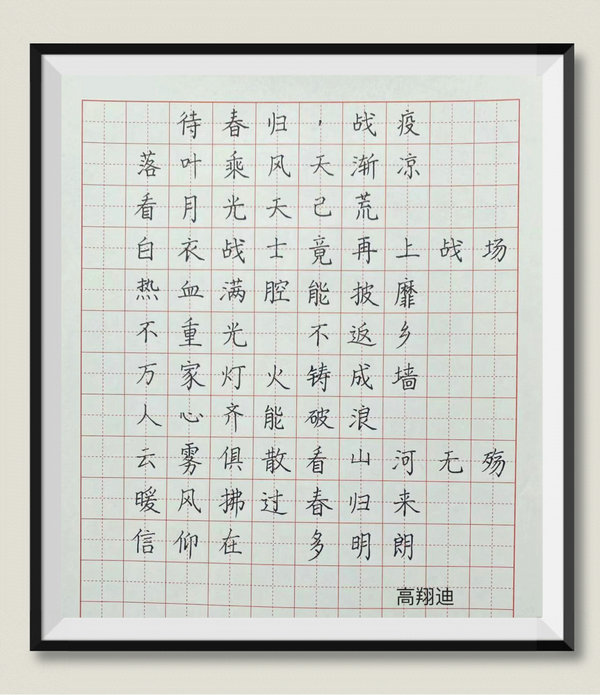 待春归，战疫
落叶乘风天渐凉
看月光天己荒
白衣战士竟再上战场
热血满腔能披靡
不重光 不返乡
万家灯火铸成墙
人心齐能破浪
云雾俱散看山河无殇
暖风拂过春归来
信仰在 多明朗
高翔迪